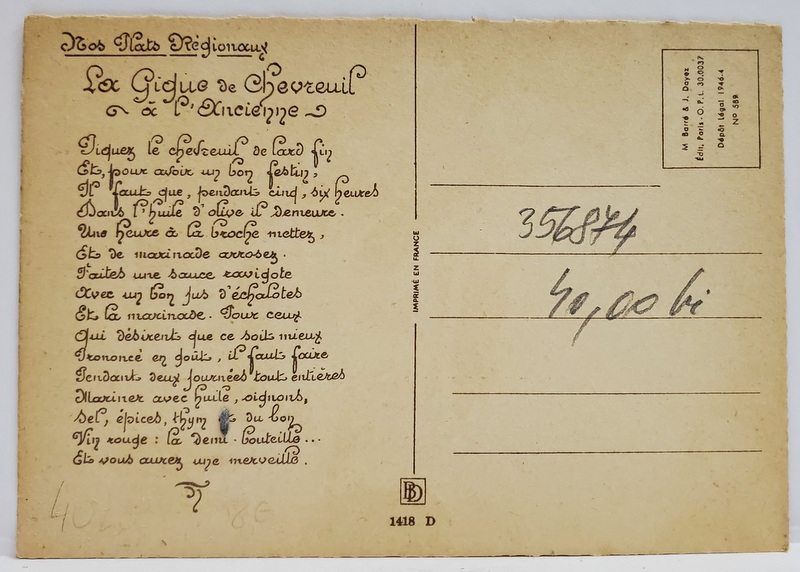 Nos Plats Régionaux
La Gigue de Chevreuil
à l'Ancienne
Piquez le chevreuil de lard fin
Et, pour avoir un bon festin,
Il faut que, pendant cinq, six heures
Dans l'huile d'olive il demeure.
Une heure à la broche mettez,
Et de marinade arrosez.
Faites une sauce ravigote
Avec un bon jus d'échalotes
Et la marinade. Pour ceux
Qui désirent que ce soit mieux
Prononcé en goût, il faut faire
Pendant deux journées tout entières
Mariner avec huile, oignons,
Sel, épices, thym et du bon
Vin rouge : la demi-bouteille...
Et vous aurez une merveille.
IMPRIMÉ EN FRANCE
BD
1418 D
M. Barré & J. Dayez
Édit. Paris - O.P.L. 30.0037
Dépôt Légal 1946-4
No 589
356874
40,00 bi